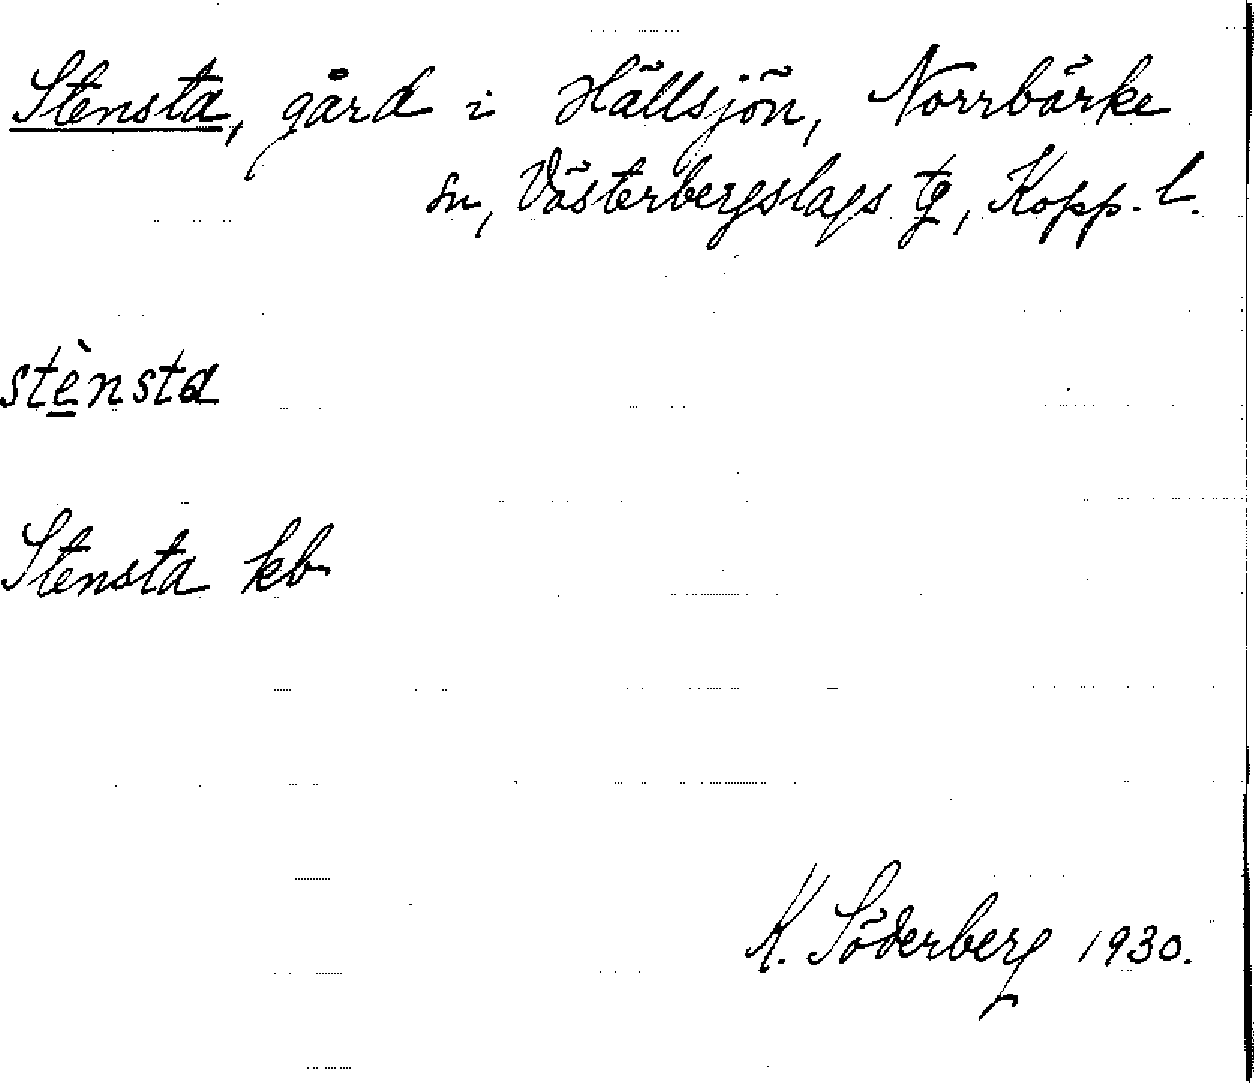 Stensta, gård i Hällsjön, Norrbärke
sn, Västerbergslags tg, Kopp. l.
stènsta
Stensta kb
K. Söderberg 1930.